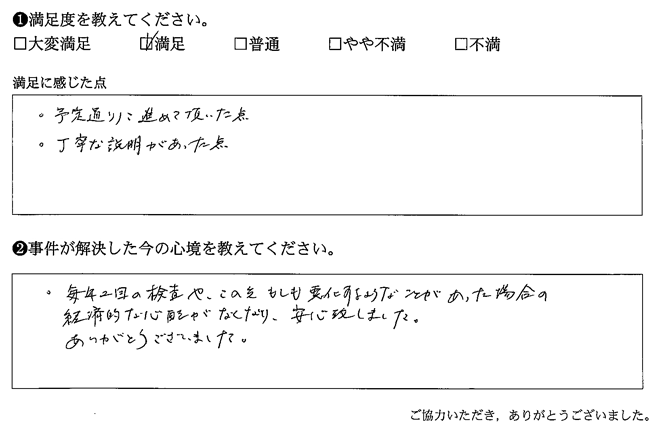 ❶満足度を教えてください。
□大変満足 ☑満足 □普通 □やや不満 □不満
満足に感じた点
・予定通りに進めて頂いた点
・丁寧な説明があった点
❷事件が解決した今の心境を教えてください。
・毎年2回の検査や、この先もしも悪化するようなことがあった場合の
経済的な心配がなくなり、安心致しました。
ありがとうございました。
ご協力いただき，ありがとうございました。